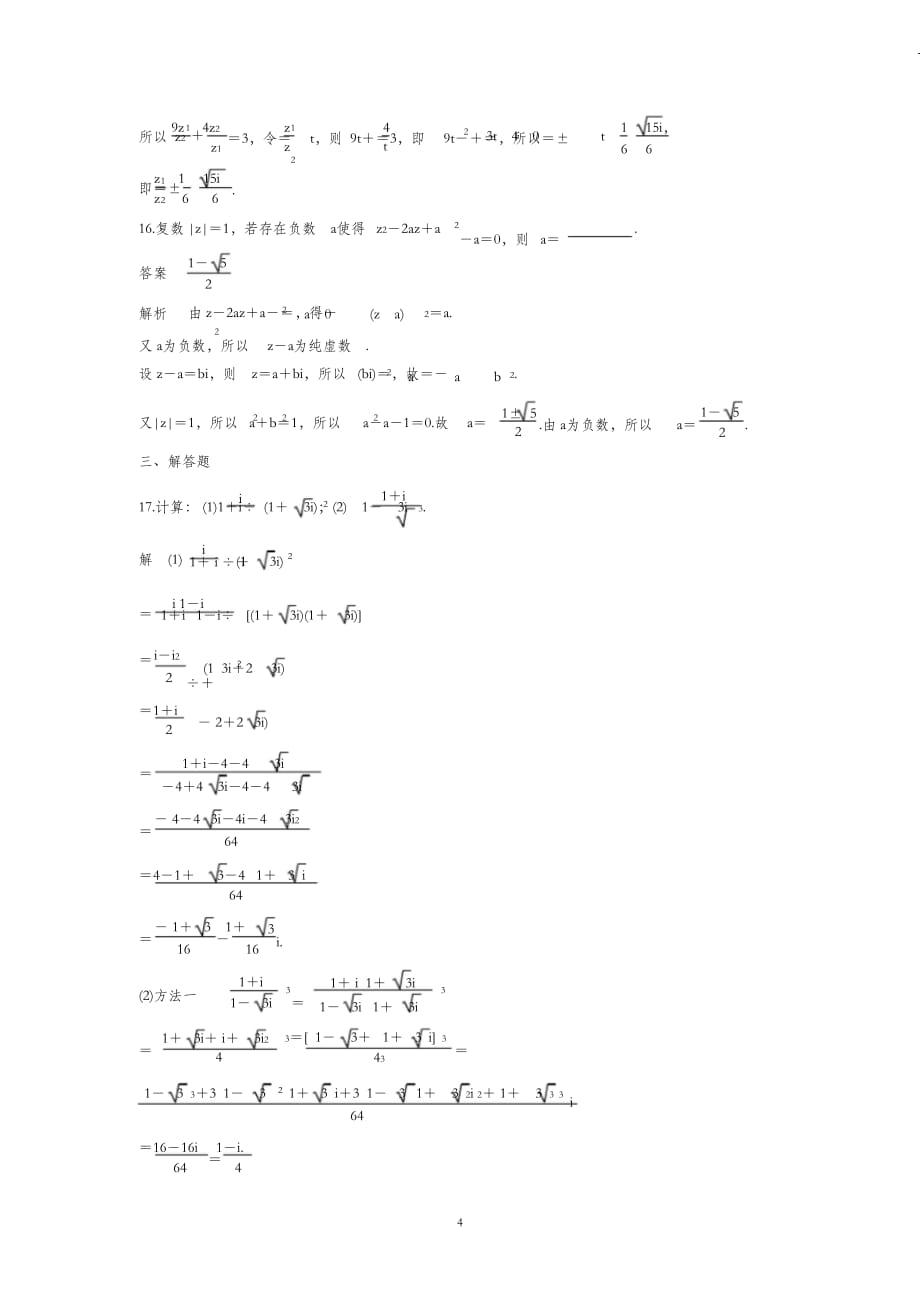 所以 9z1/z2＋4z2/z1＝3，令 z1/z2＝t，则 9t＋4/t＝3，即 9t2－3t＋4＝0，所以 t＝1/6±√15i/6，
即 z1/z2＝1/6±√15i/6.
16.复数 |z|＝1，若存在负数 a使得 z2－2az＋a2－a＝0，则 a＝________.
答案 1－√5/2
解析 由 z2－2az＋a2－a＝0，得(z－a)2＝a.
又 a为负数，所以 z－a为纯虚数.
设 z－a＝bi，则 z＝a＋bi，所以 (bi)2＝a，故 a＝－b2.
又|z|＝1，所以 a2＋b2＝1，所以 a2－a－1＝0.故 a＝1±√5/2.由 a为负数，所以 a＝1－√5/2.
三、解答题
17.计算： (1) i/1＋i÷(1＋√3i)2； (2) (1＋i/1－√3i)3.
解 (1) i/1＋i÷(1＋√3i)2
＝i 1－i/1＋i 1－i÷[(1＋√3i)(1＋√3i)]
＝i－i2/2÷(1＋3i2＋2√3i)
＝1＋i/2 －2＋2√3i)
＝1＋i－4－4√3i/－4＋4√3i－4－4√3i
＝－4－4√3i－4i－4√3i2/64
＝4－1＋√3－4 1＋√3 i/64
＝－1＋√3/16－1＋√3/16 i.
(2)方法一 1＋i/1－√3i 3＝1＋i 1＋√3i/1－√3i 1＋√3i 3
＝1＋√3i＋i＋√3i2/4 3＝[ 1－√3＋ 1＋√3 i] 3/43＝
1－√3 3＋3 1－√3 2 1＋√3 i＋3 1－√3 1＋√3 2i2＋1＋√3 3 i3/64
＝16－16i/64＝1－i/4.
4